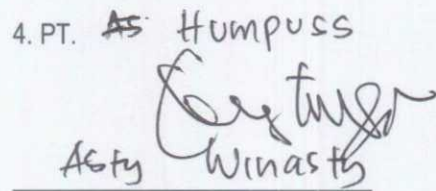 4. PT. Humpuss
Asty Winasty